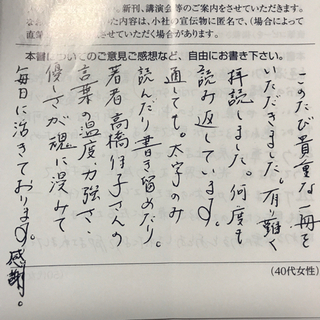 新刊、講演会等のご案内をさせていただきます。
た内容は、小社の宣伝物に匿名で、(場合によって
させていただく場合があります)
本書についてのご意見ご感想など、自由にお書き下さい。
このたび貴重な一冊を
いただきました。有り難く
拝読しました。何度も
読み返しています。
通しても。太字のみ
読んだり書き留めたり。
著者 高橋 子さんの
言葉の温度、力強さ、
優しさが魂に浸みて
毎日に活きております。感謝。
(40代女性)